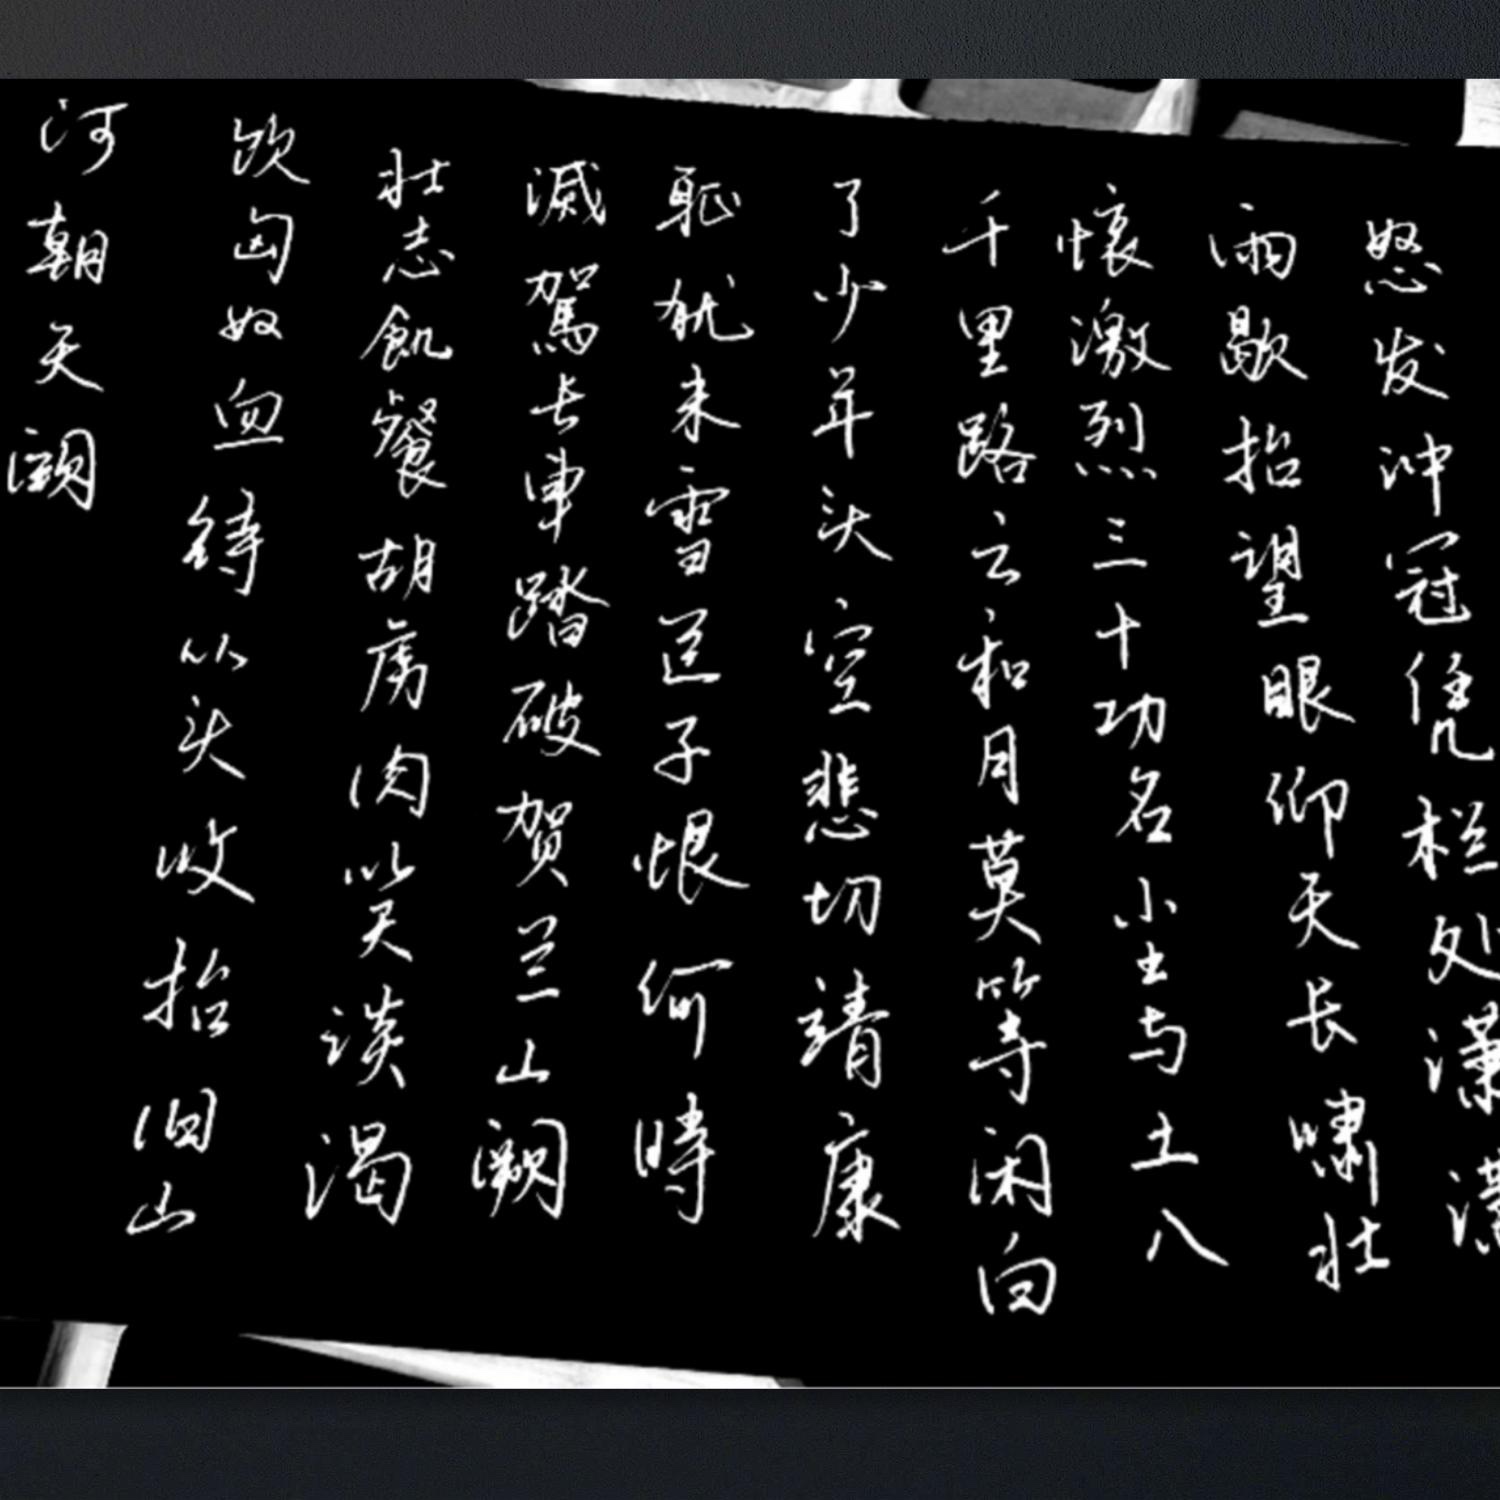 怒发冲冠凭栏处潇潇
雨歇抬望眼仰天长啸壮
懷激烈三十功名尘与土八
千里路云和月莫等闲白
了少年头空悲切靖康
耻犹未雪臣子恨何時
滅駕长車踏破贺兰山阙
壮志飢餐胡虏肉笑談渴
饮匈奴血待从头收拾旧山
河朝天阙